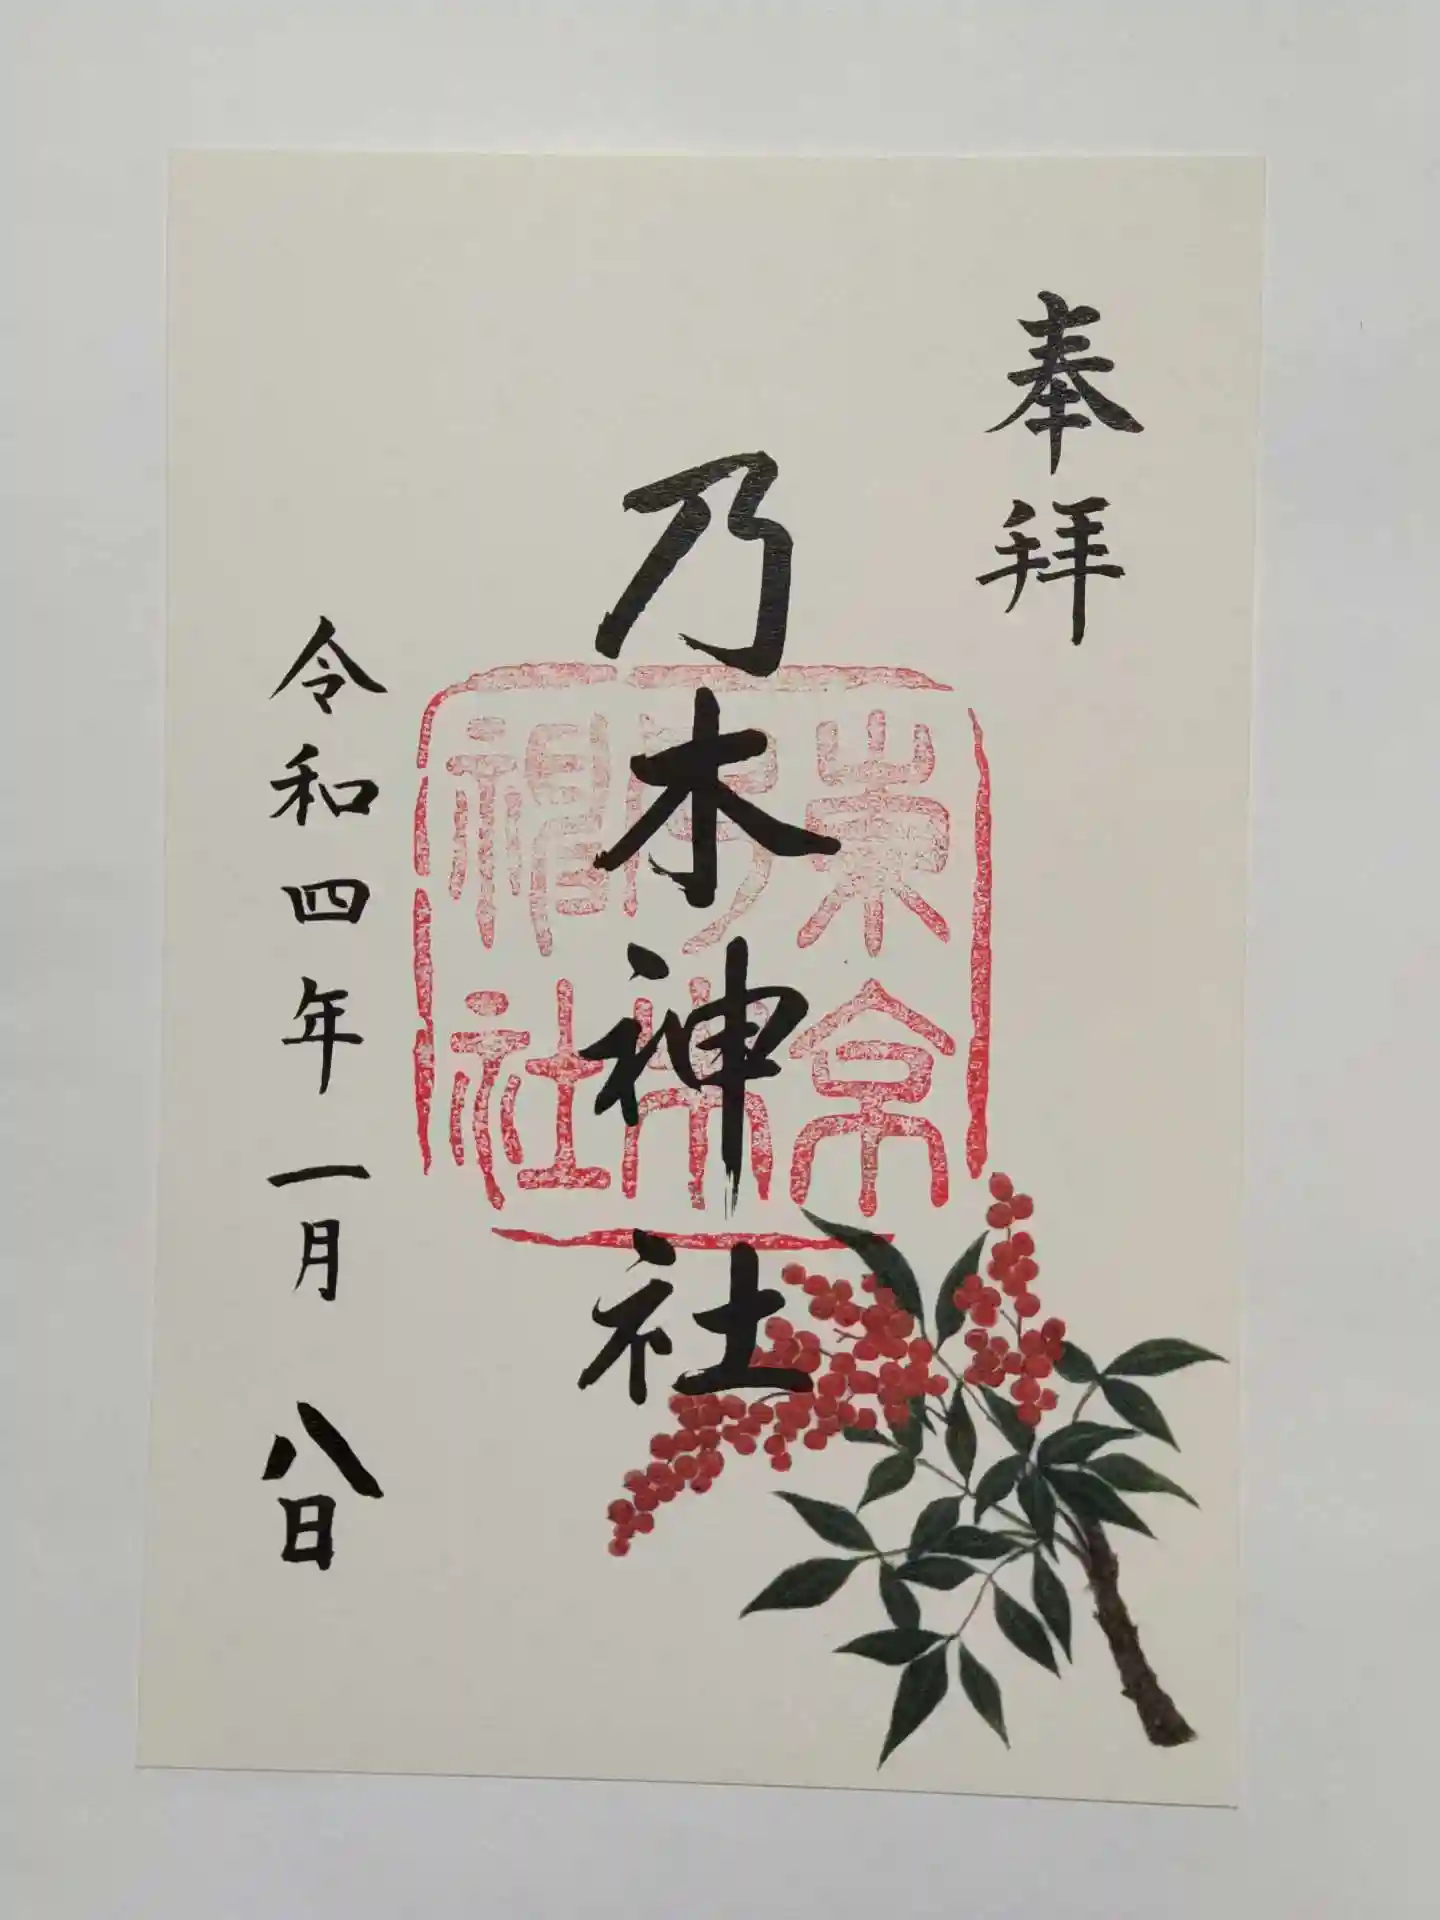 奉拝
乃木神社
東京
乃木
神社
令和四年一月八日